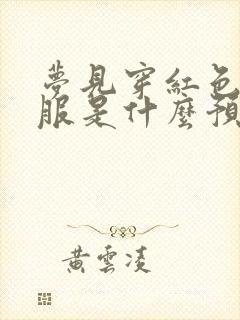 夢見穿紅色
服是什麼預
黃雲凌